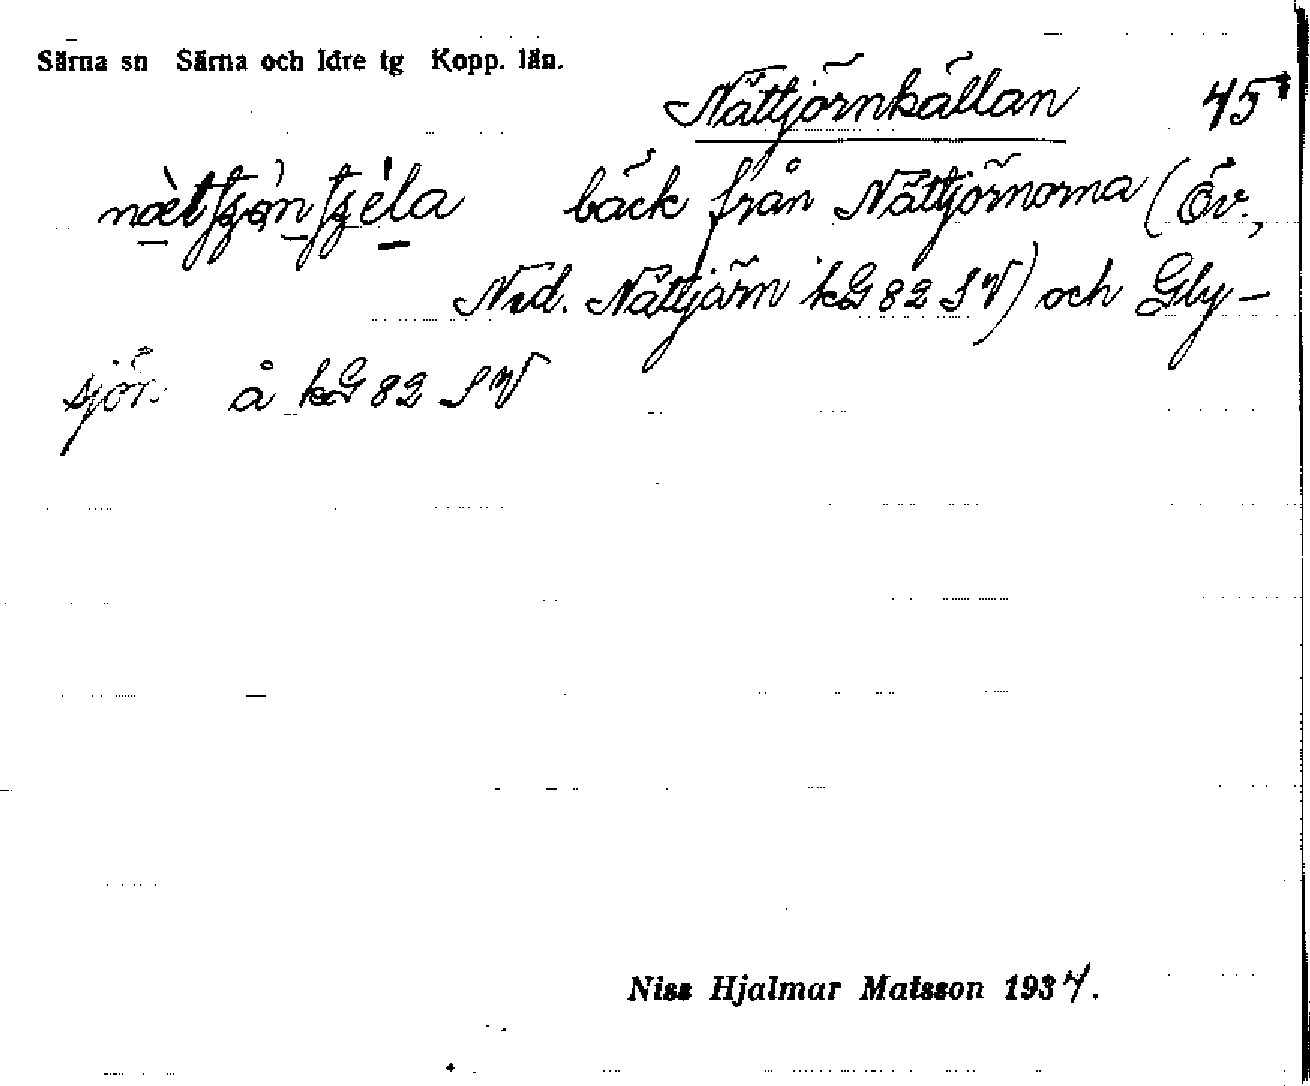 Särna sn Särna och Idre tg Kopp. län.
Nättjörnkällan 45
bäck från Nättjörnorna (Öv.,
Ned. Nättjärn kG 82 SV) och Gly-
sjön å kG 82 SV
Niss Hjalmar Matsson 1934.